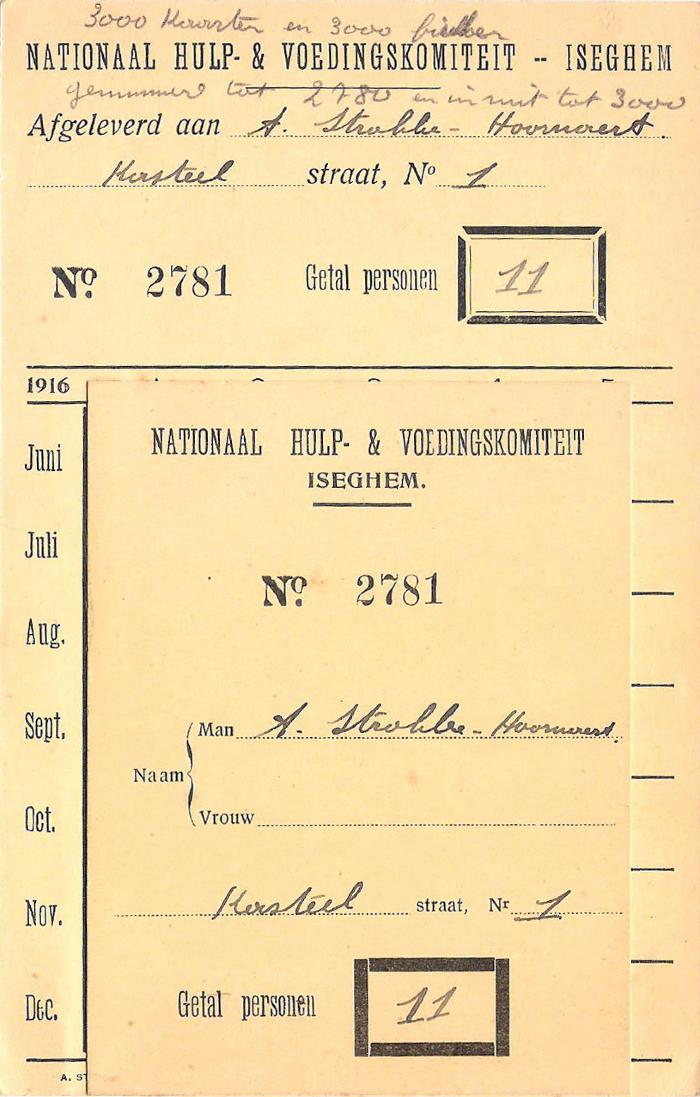 3000 Kaarten en 3000
NATIONAAL HULP- & VOEDINGSKOMITEIT -- ISEGHEM
genummerd tot 2780 en in wit tot 3000
Afgeleverd aan A. Strobbe - Hoornaert.
Kasteel straat, No 1
No. 2781 Getal personen 11
1916
Juni
Juli
Aug.
Sept.
Oct.
Nov.
Dec.
A. ST
NATIONAAL HULP- & VOEDINGSKOMITEIT
ISEGHEM.
No. 2781
Man A. Strobbe - Hoornaert.
Naam
Vrouw
Kasteel straat, Nr 1
Getal personen 11